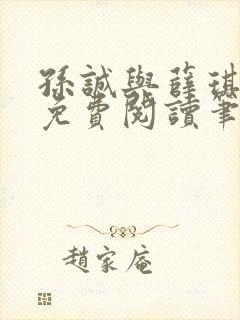 孫誠與薛琪
免費閱讀筆
趙家庵